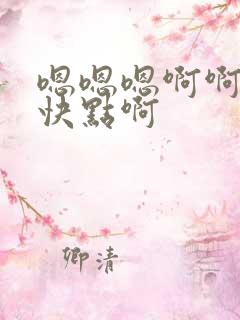 嗯嗯嗯啊啊
快點啊
卿清